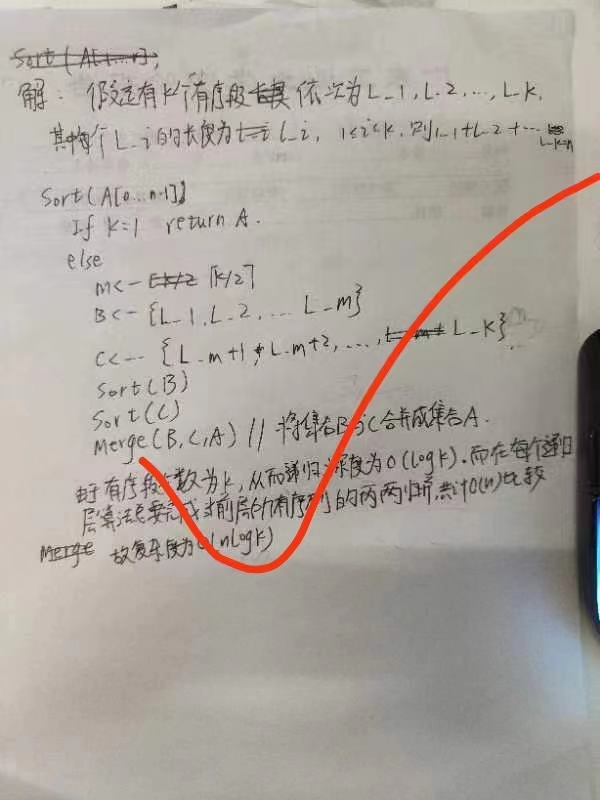 解：假定有k个有序段 依次为L_1, L_2, ..., L_k,
其中每个L_i的长度为L_i, 1≤i≤k, 则L_1+L_2+...L_k=n
Sort(A[0...n-1])
If k=1 return A.
else
m<- ⌈k/2⌉
B<- {L_1, L_2, ... L_m}
C<- {L_m+1, L_m+2, ..., L_k}
Sort(B)
Sort(C)
Merge(B, C, A) // 将集合B与C合并成集合A.
由于有序段个数为k, 从而递归深度为O(logk). 而在每个递归
层算法总要完成当前层所有序列的两两归并, 共计O(n)比较
故复杂度为O(nlogk)